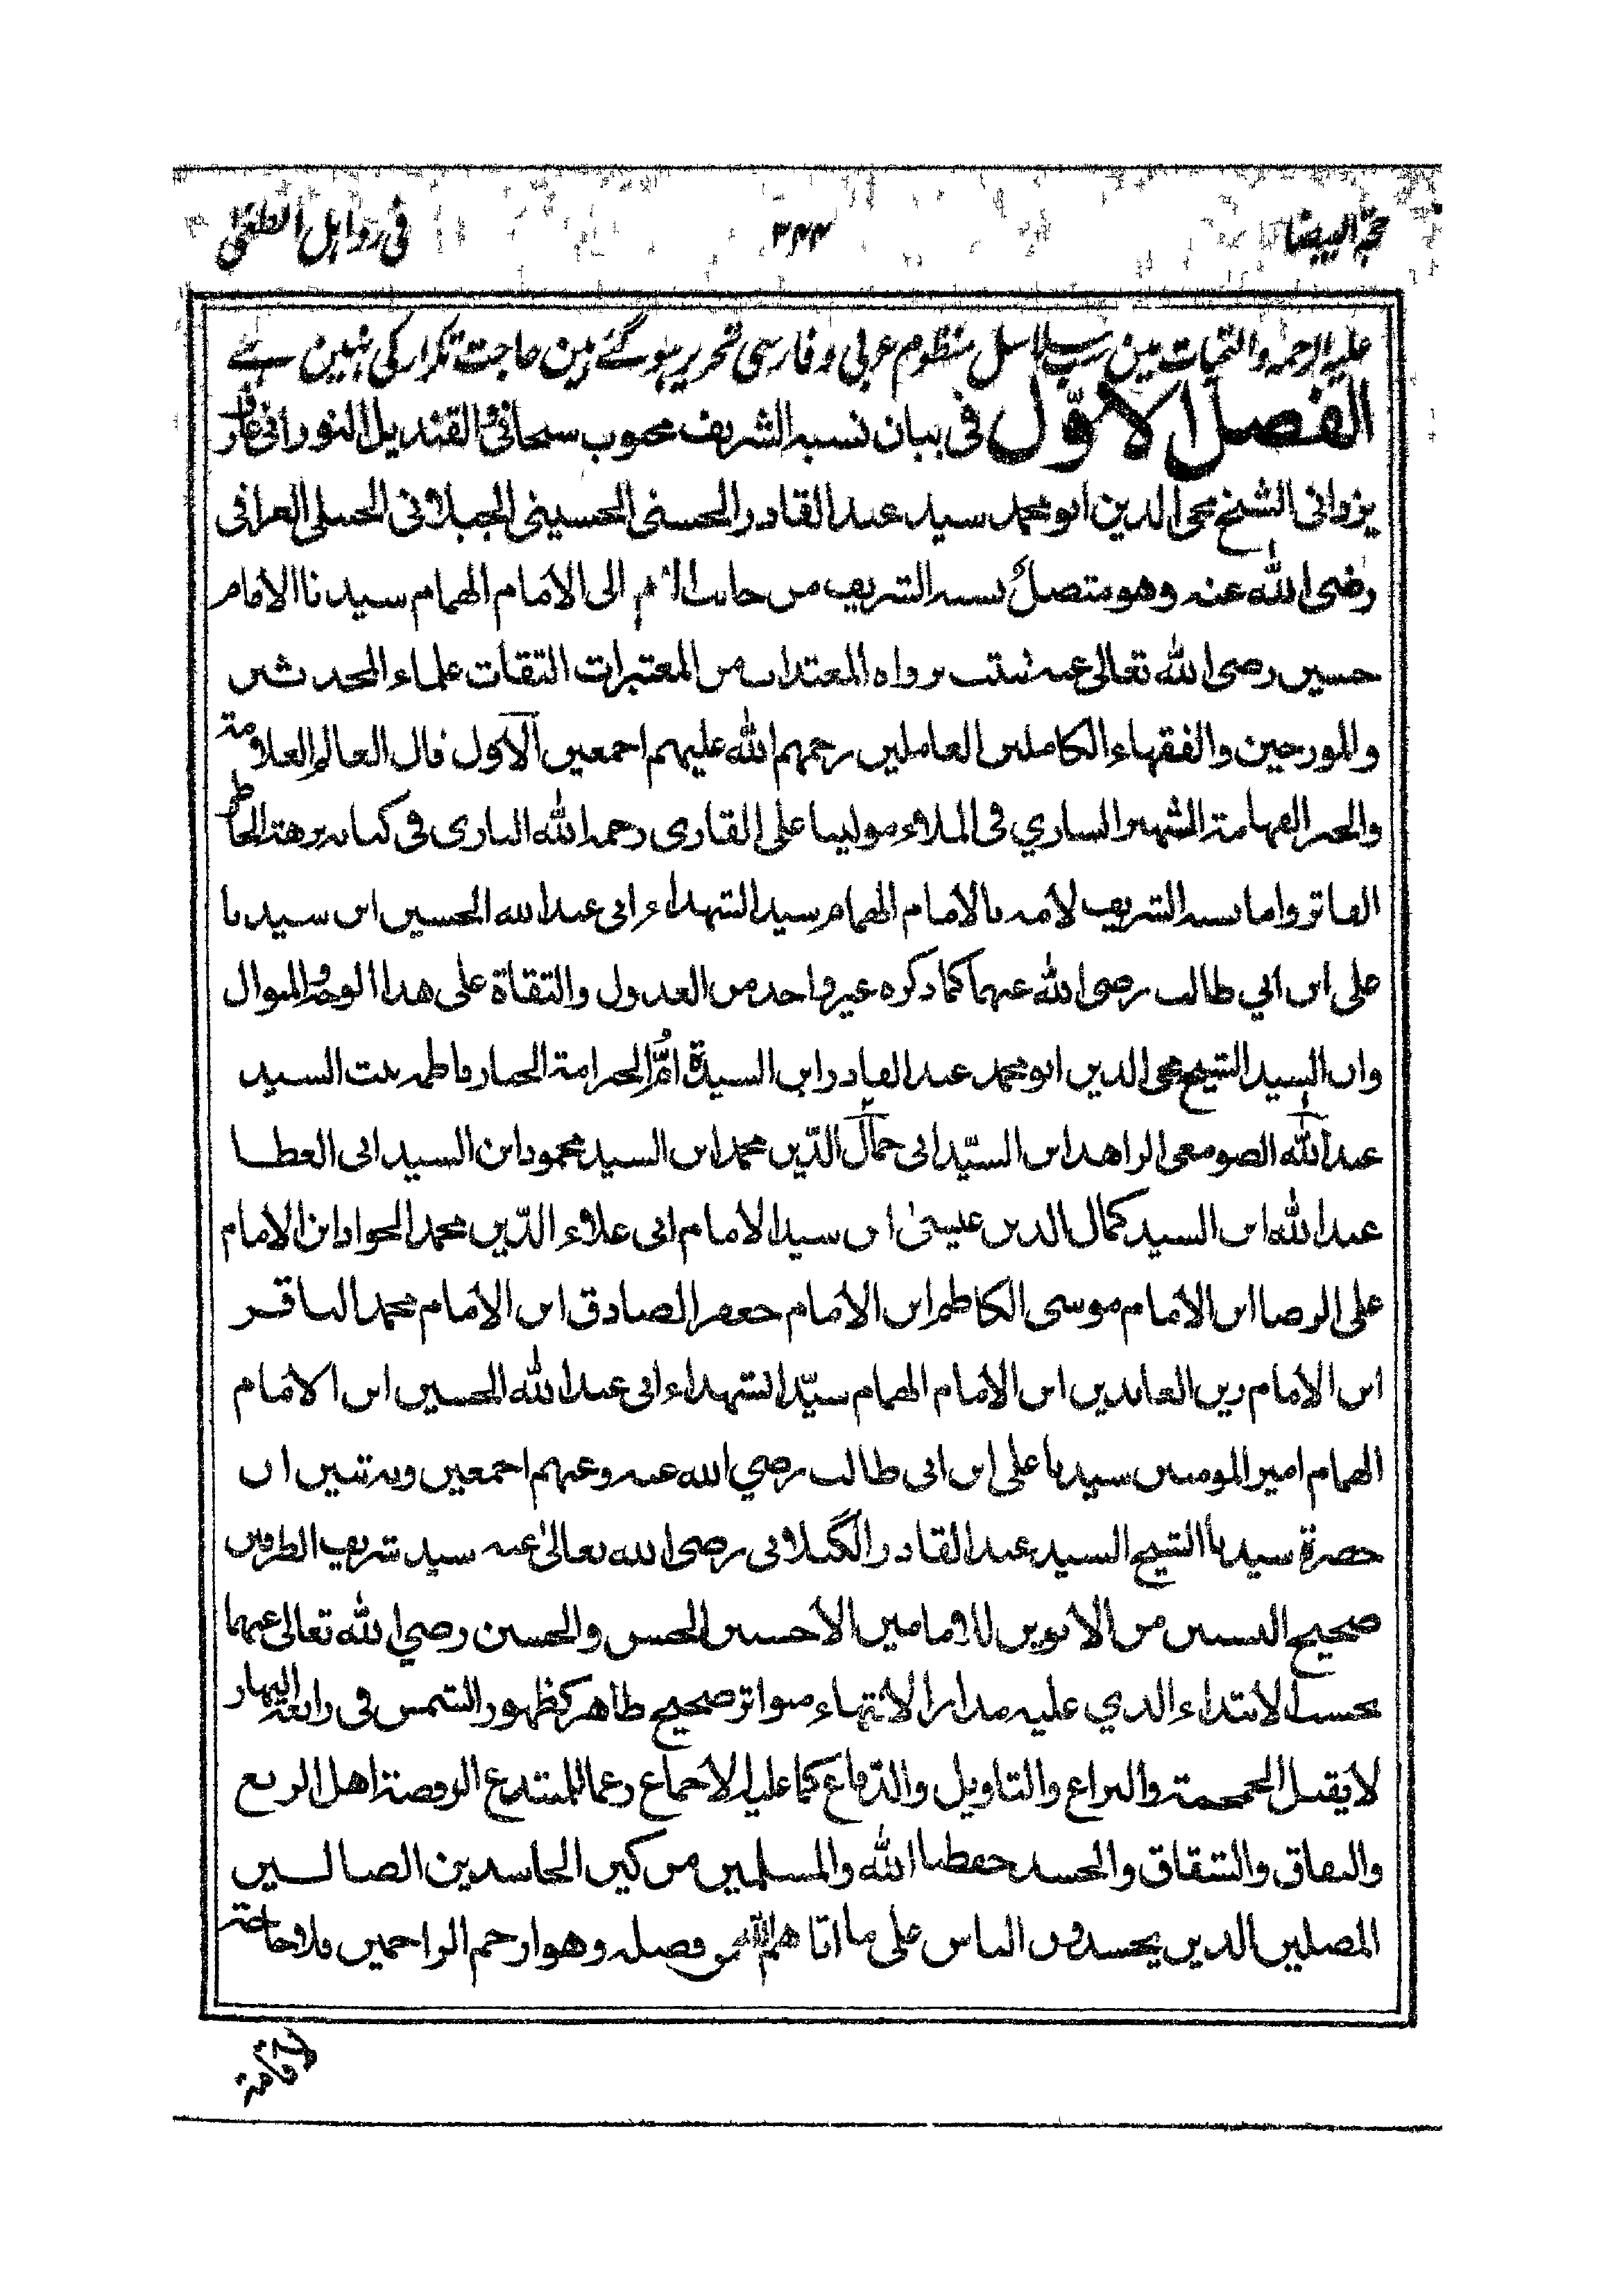 حجة البيضا ٣٤٤ في رد اہل الطغی
علیہ الرحمۃ والتحیات مین سب سلاسل منظوم عربی و فارسی تحریر ہو گئے ہین حاجت تکرار کی نہین ہے
الفصل الاوّل في بيان نسبه الشريف محبوب سبحاني القنديل النوراني
يزداني الشيخ محي الدين ابو محمد سيد عبد القادر الحسني الحسيني الجيلاني الحنبلي العراقي
رضي الله عنه وهو متصل نسبه الشريف من جانب الام الى الامام الهمام سيدنا الامام
حسين رضي الله تعالى عنه ثبتت برواة المعتبرات الثقات علماء المحدثين
والمورخين والفقهاء الكاملين العاملين رحمهم الله عليهم اجمعين الاول قال العالم العلامة
والحبر الفهامة الشهير الساري في الملاء مولينا علي القاري رحمه الله الباري في كتابه نزهة الخاطر
الفاتر واما نسبه الشريف لامه بالامام الهمام سيد الشهداء ابي عبد الله الحسين ابن سيدنا
علي ابن ابي طالب رضي الله عنهما كما ذكره غير واحد من العدول والثقاة على هذا الوجه المنوال
وان السيد الشيخ محي الدين ابو محمد عبد القادر ابن السيدة امّ الخير امة الجبار فاطمه بنت السيد
عبد الله الصومعي الزاهد ابن السيّد ابي جمال الدّين محمد ابن السيد محمود ابن السيد ابي العطا
عبد الله ابن السيد كمال الدين عيسى ابن سيد الامام ابي علاء الدّين محمد الجواد ابن الامام
علي الرضا ابن الامام موسى الكاظم ابن الامام جعفر الصادق ابن الامام محمد الباقر
ابن الامام زين العابدين ابن الامام الهمام سيّد الشهداء ابي عبد الله الحسين ابن الامام
الهمام امير المومنين سيدنا علي ابن ابي طالب رضي الله عنه وعنهم اجمعين وبه تبين ان
حضرة سيدنا الشيخ السيد عبد القادر الگيلاني رضي الله تعالى عنه سيد شريف الطرفين
صحيح النسبين من الابوين للامامين الاحسنين الحسن والحسين رضي الله تعالى عنهما
بحسب الابتداء الذي عليه مدار الانتهاء متواتر صحيح ظاهر كظهور الشمس في رابعة النهار
لا يقبل الجمجمة والنزاع والتاويل والدّفاع كما عليه الاجماع رغما للمبتدع الروضة اهل الزيع
والنفاق والشقاق والحسد حفظنا الله والمسلمين من كين الحاسدين الضالين
المضلين الذين يحسدون الناس على ما اتاهم الله من فضله وهو ارحم الراحمين فلا حاجة
اقامة